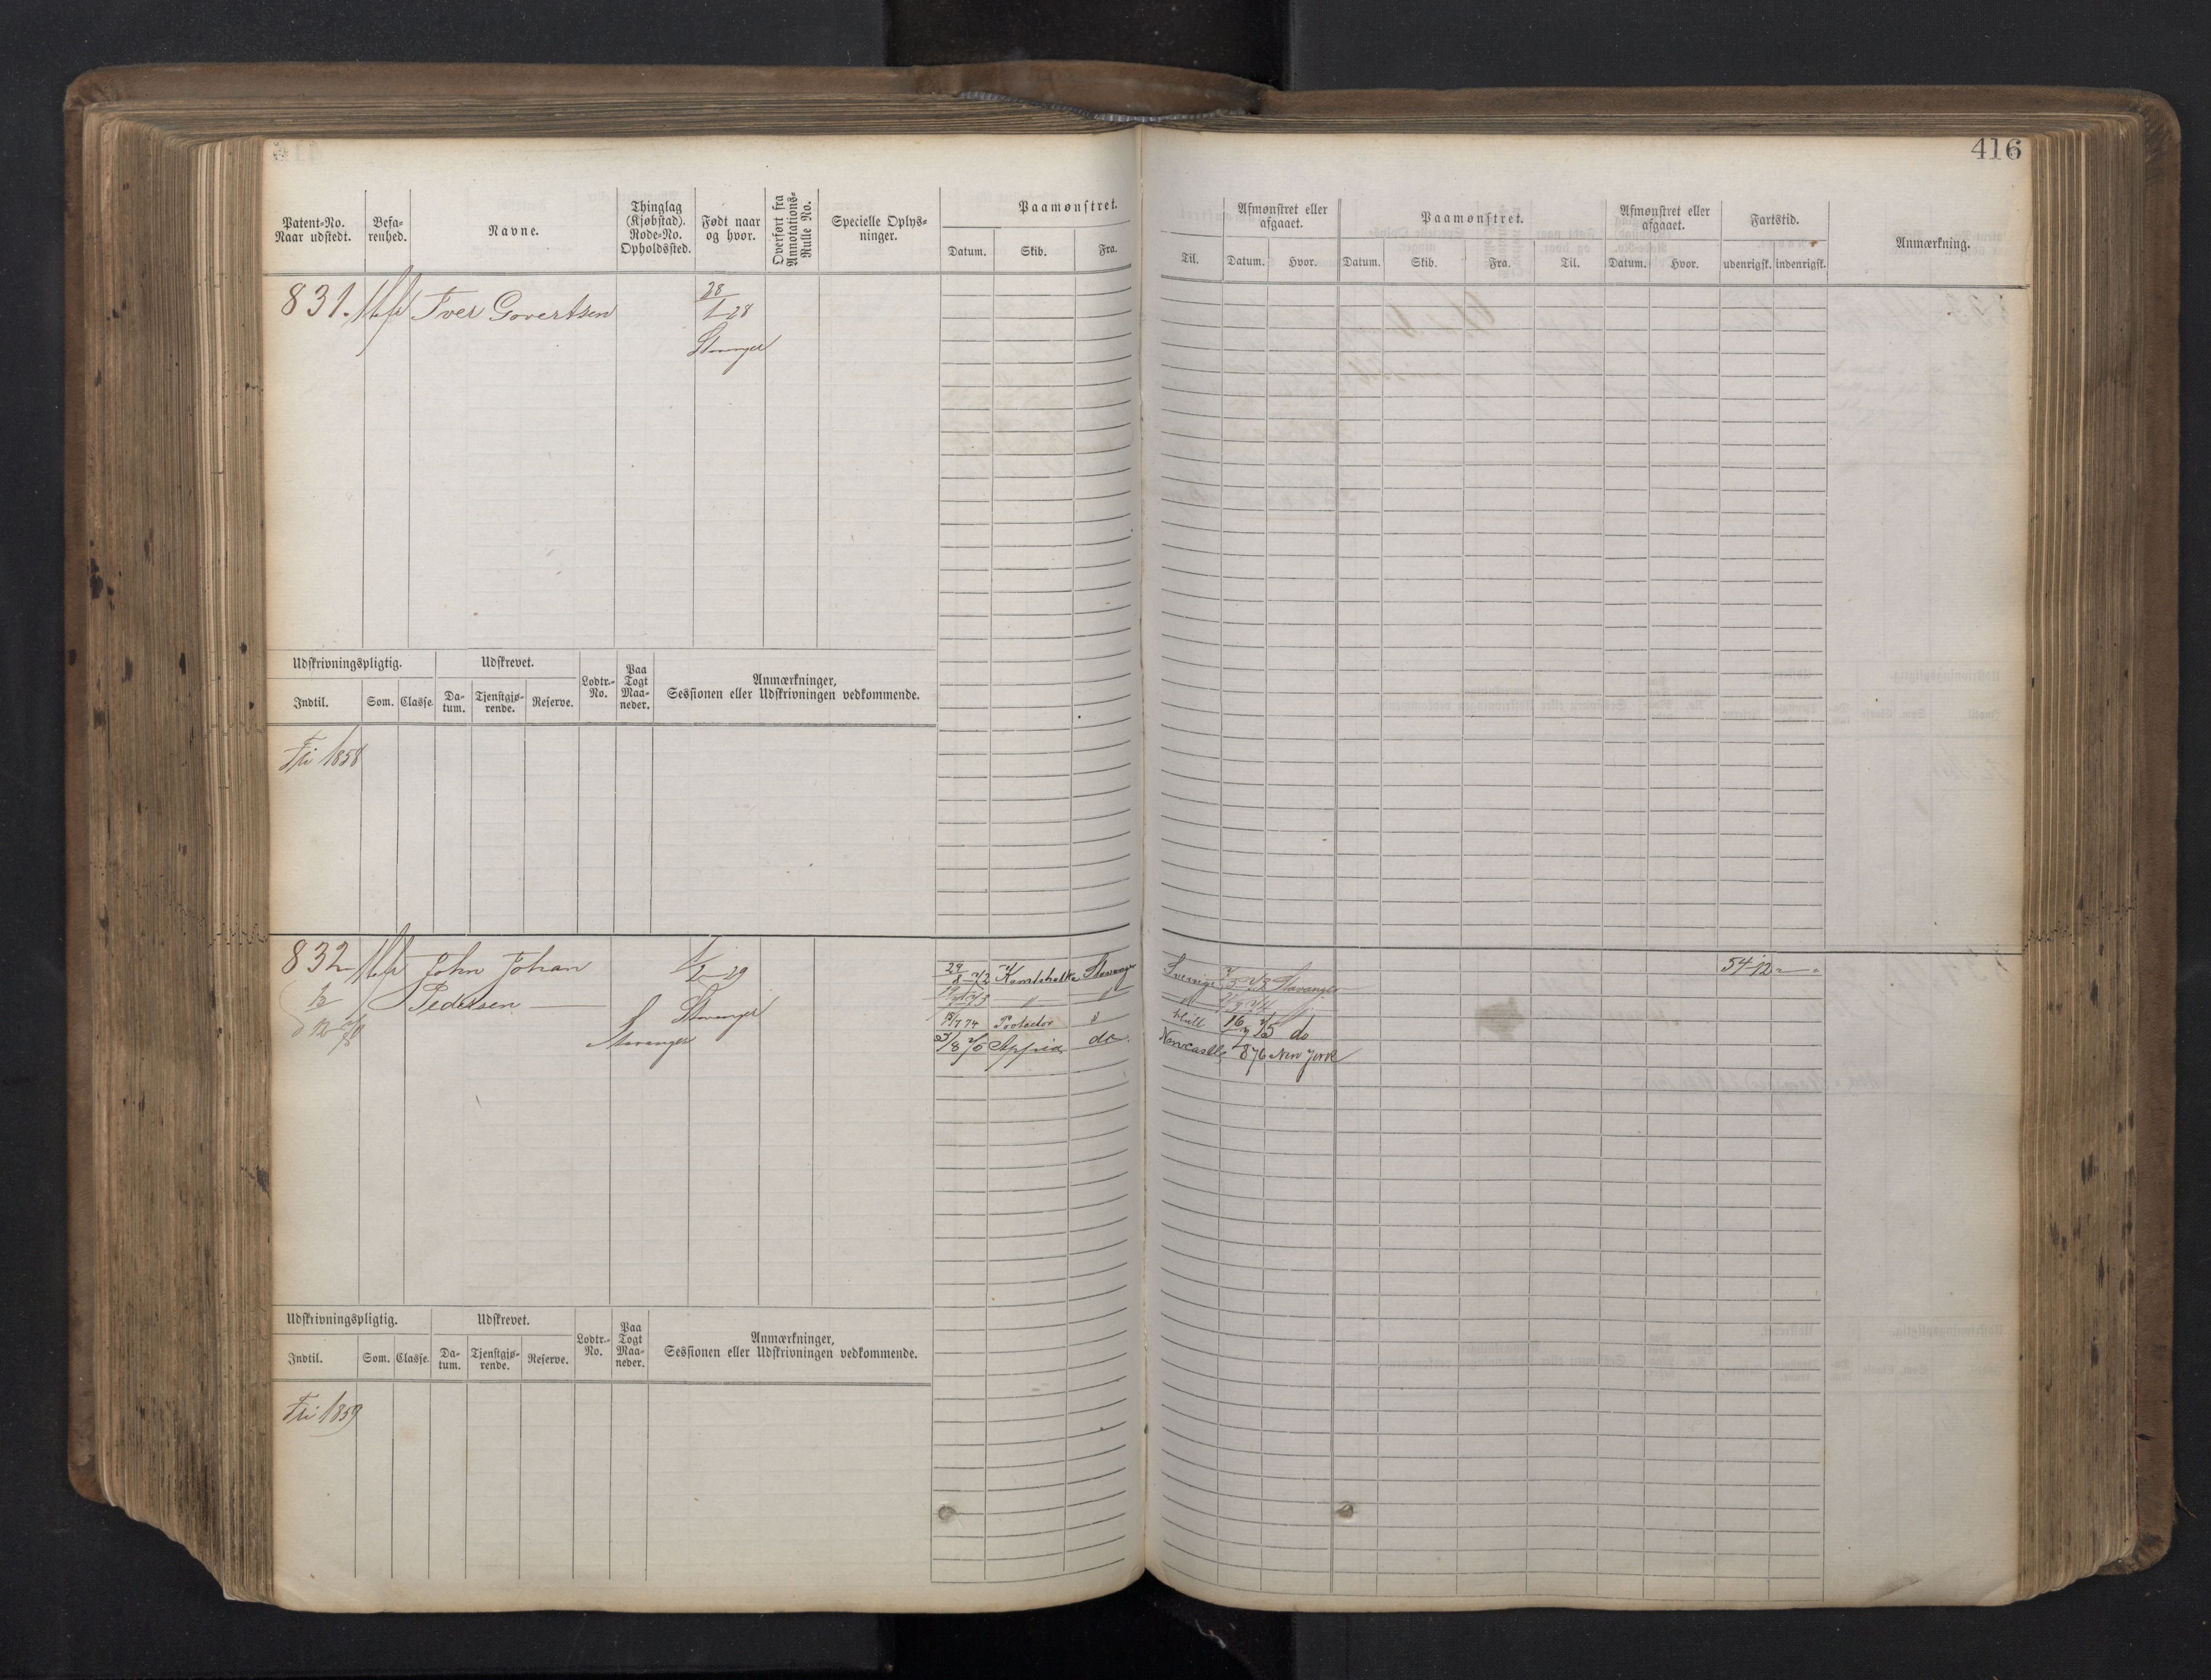 416
Patent-No. Naar udstedt. Befa-renhed. Navne. Thinglag (Kjøbstad). Rode-No. Opholdssted. Født naar og hvor. Overført fra Annotations-Rulle No. Specielle Oplys-ninger. Paamønstret. Afmønstret eller afgaaet. Paamønstret. Afmønstret eller afgaaet. Fartstid. Anmærkning.
Datum. Skib. Fra. Til. Datum. Hvor. Datum. Skib. Fra. Til. Datum. Hvor. udenrigsk. indenrigsk.
831. Iver Govertsen 28/1 28
Stavanger
Udskrivningspligtig. Udskrevet. Lodtr.-No. Paa Togt Maa-neder. Anmærkninger, Sessionen eller Udskrivningen vedkommende.
Indtil. Som. Classe. Da-tum. Tjenstgjø-rende. Reserve.
Fri 1858
832 John Johan 1/2 29 29/8 72 Stavanger Sverige Stavanger 54-12
Pedersen Stavanger
15/7 74 Hull 16/7 75 do
Stavanger do Newcastle 876 New York
Udskrivningspligtig. Udskrevet. Lodtr.-No. Paa Togt Maa-neder. Anmærkninger, Sessionen eller Udskrivningen vedkommende.
Indtil. Som. Classe. Da-tum. Tjenstgjø-rende. Reserve.
Fri 1859